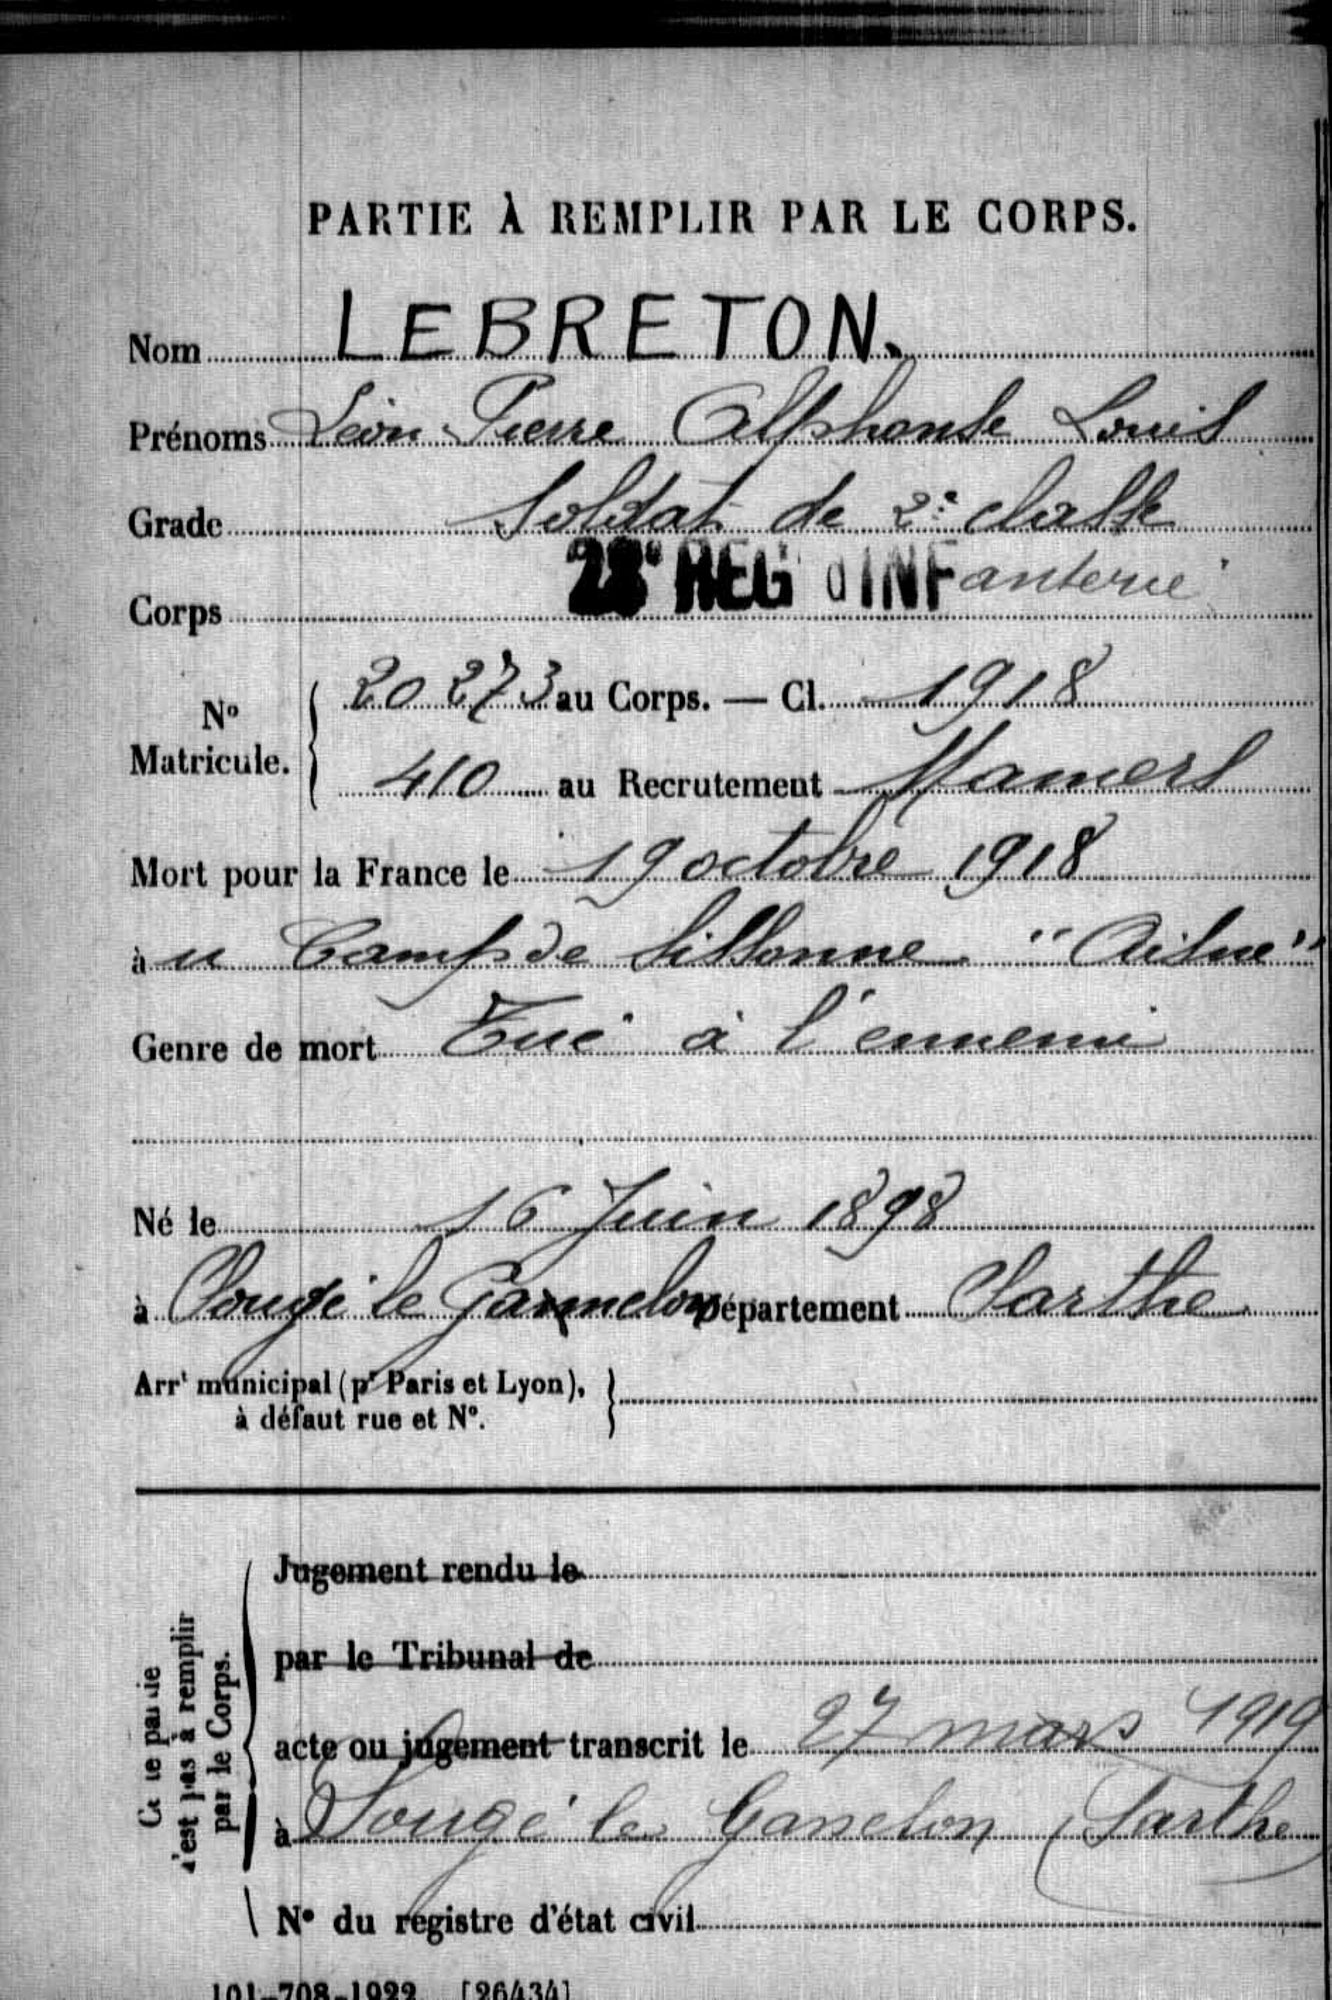 PARTIE À REMPLIR PAR LE CORPS.
Nom LEBRETON.
Prénoms Léon Pierre Alphonse Louis
Grade Soldat de 2e classe
Corps 28e REG d'INFanterie
No Matricule. 20 273 au Corps. — Cl. 1918
410 au Recrutement Mamers
Mort pour la France le 19 octobre 1918
à u Camp de Sissonne "Aisne"
Genre de mort Tué à l'ennemi
Né le 16 Juin 1898
à Sougé le Département Sarthe
Arrt municipal (pr Paris et Lyon),
à défaut rue et No.
Cette partie
n'est pas à remplir
par le Corps.
Jugement rendu le
par le Tribunal de
acte ou jugement transcrit le 27 mars 1919
à Sougé le Ganelon (Sarthe
No du registre d'état civil
101-708-1922. [26434]